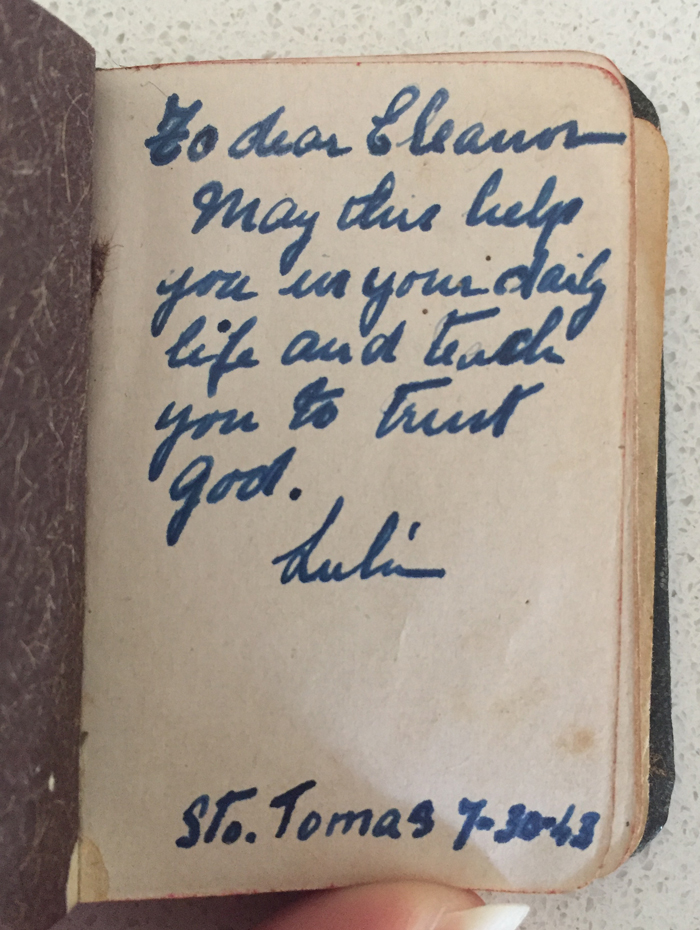 To dear Eleanor
May this help
you in your daily
life and teach
you to trust
God.
Lulu
Sto. Tomas 7-30-43